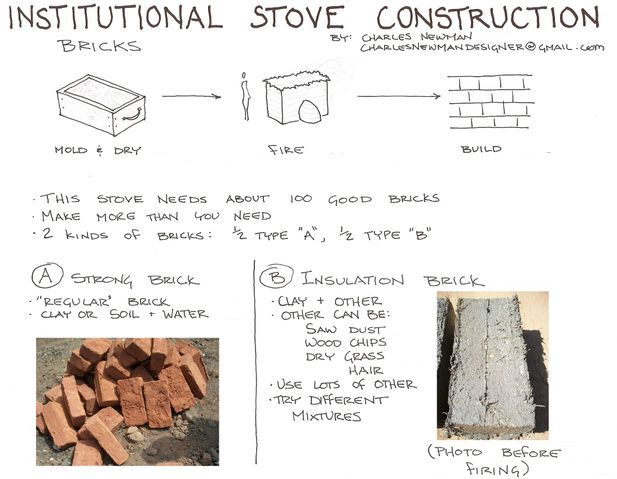 INSTITUTIONAL STOVE CONSTRUCTION
BRICKS
BY: CHARLES NEWMAN
CHARLESNEWMANDESIGNER@GMAIL.COM
MOLD & DRY
FIRE
BUILD
· THIS STOVE NEEDS ABOUT 100 GOOD BRICKS
· MAKE MORE THAN YOU NEED
· 2 KINDS OF BRICKS: ½ TYPE "A", ½ TYPE "B"
A STRONG BRICK
· "REGULAR" BRICK
· CLAY OR SOIL + WATER
B INSULATION BRICK
· CLAY + OTHER
· OTHER CAN BE:
SAW DUST
WOOD CHIPS
DRY GRASS
HAIR
· USE LOTS OF OTHER
· TRY DIFFERENT
MIXTURES
(PHOTO BEFORE
FIRING)